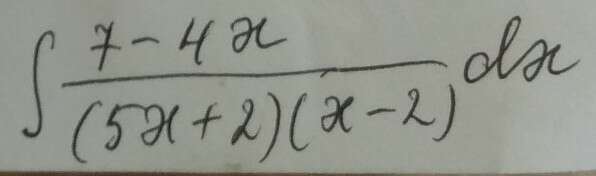 ∫ \frac{7-4x}{(5x+2)(x-2)} dx